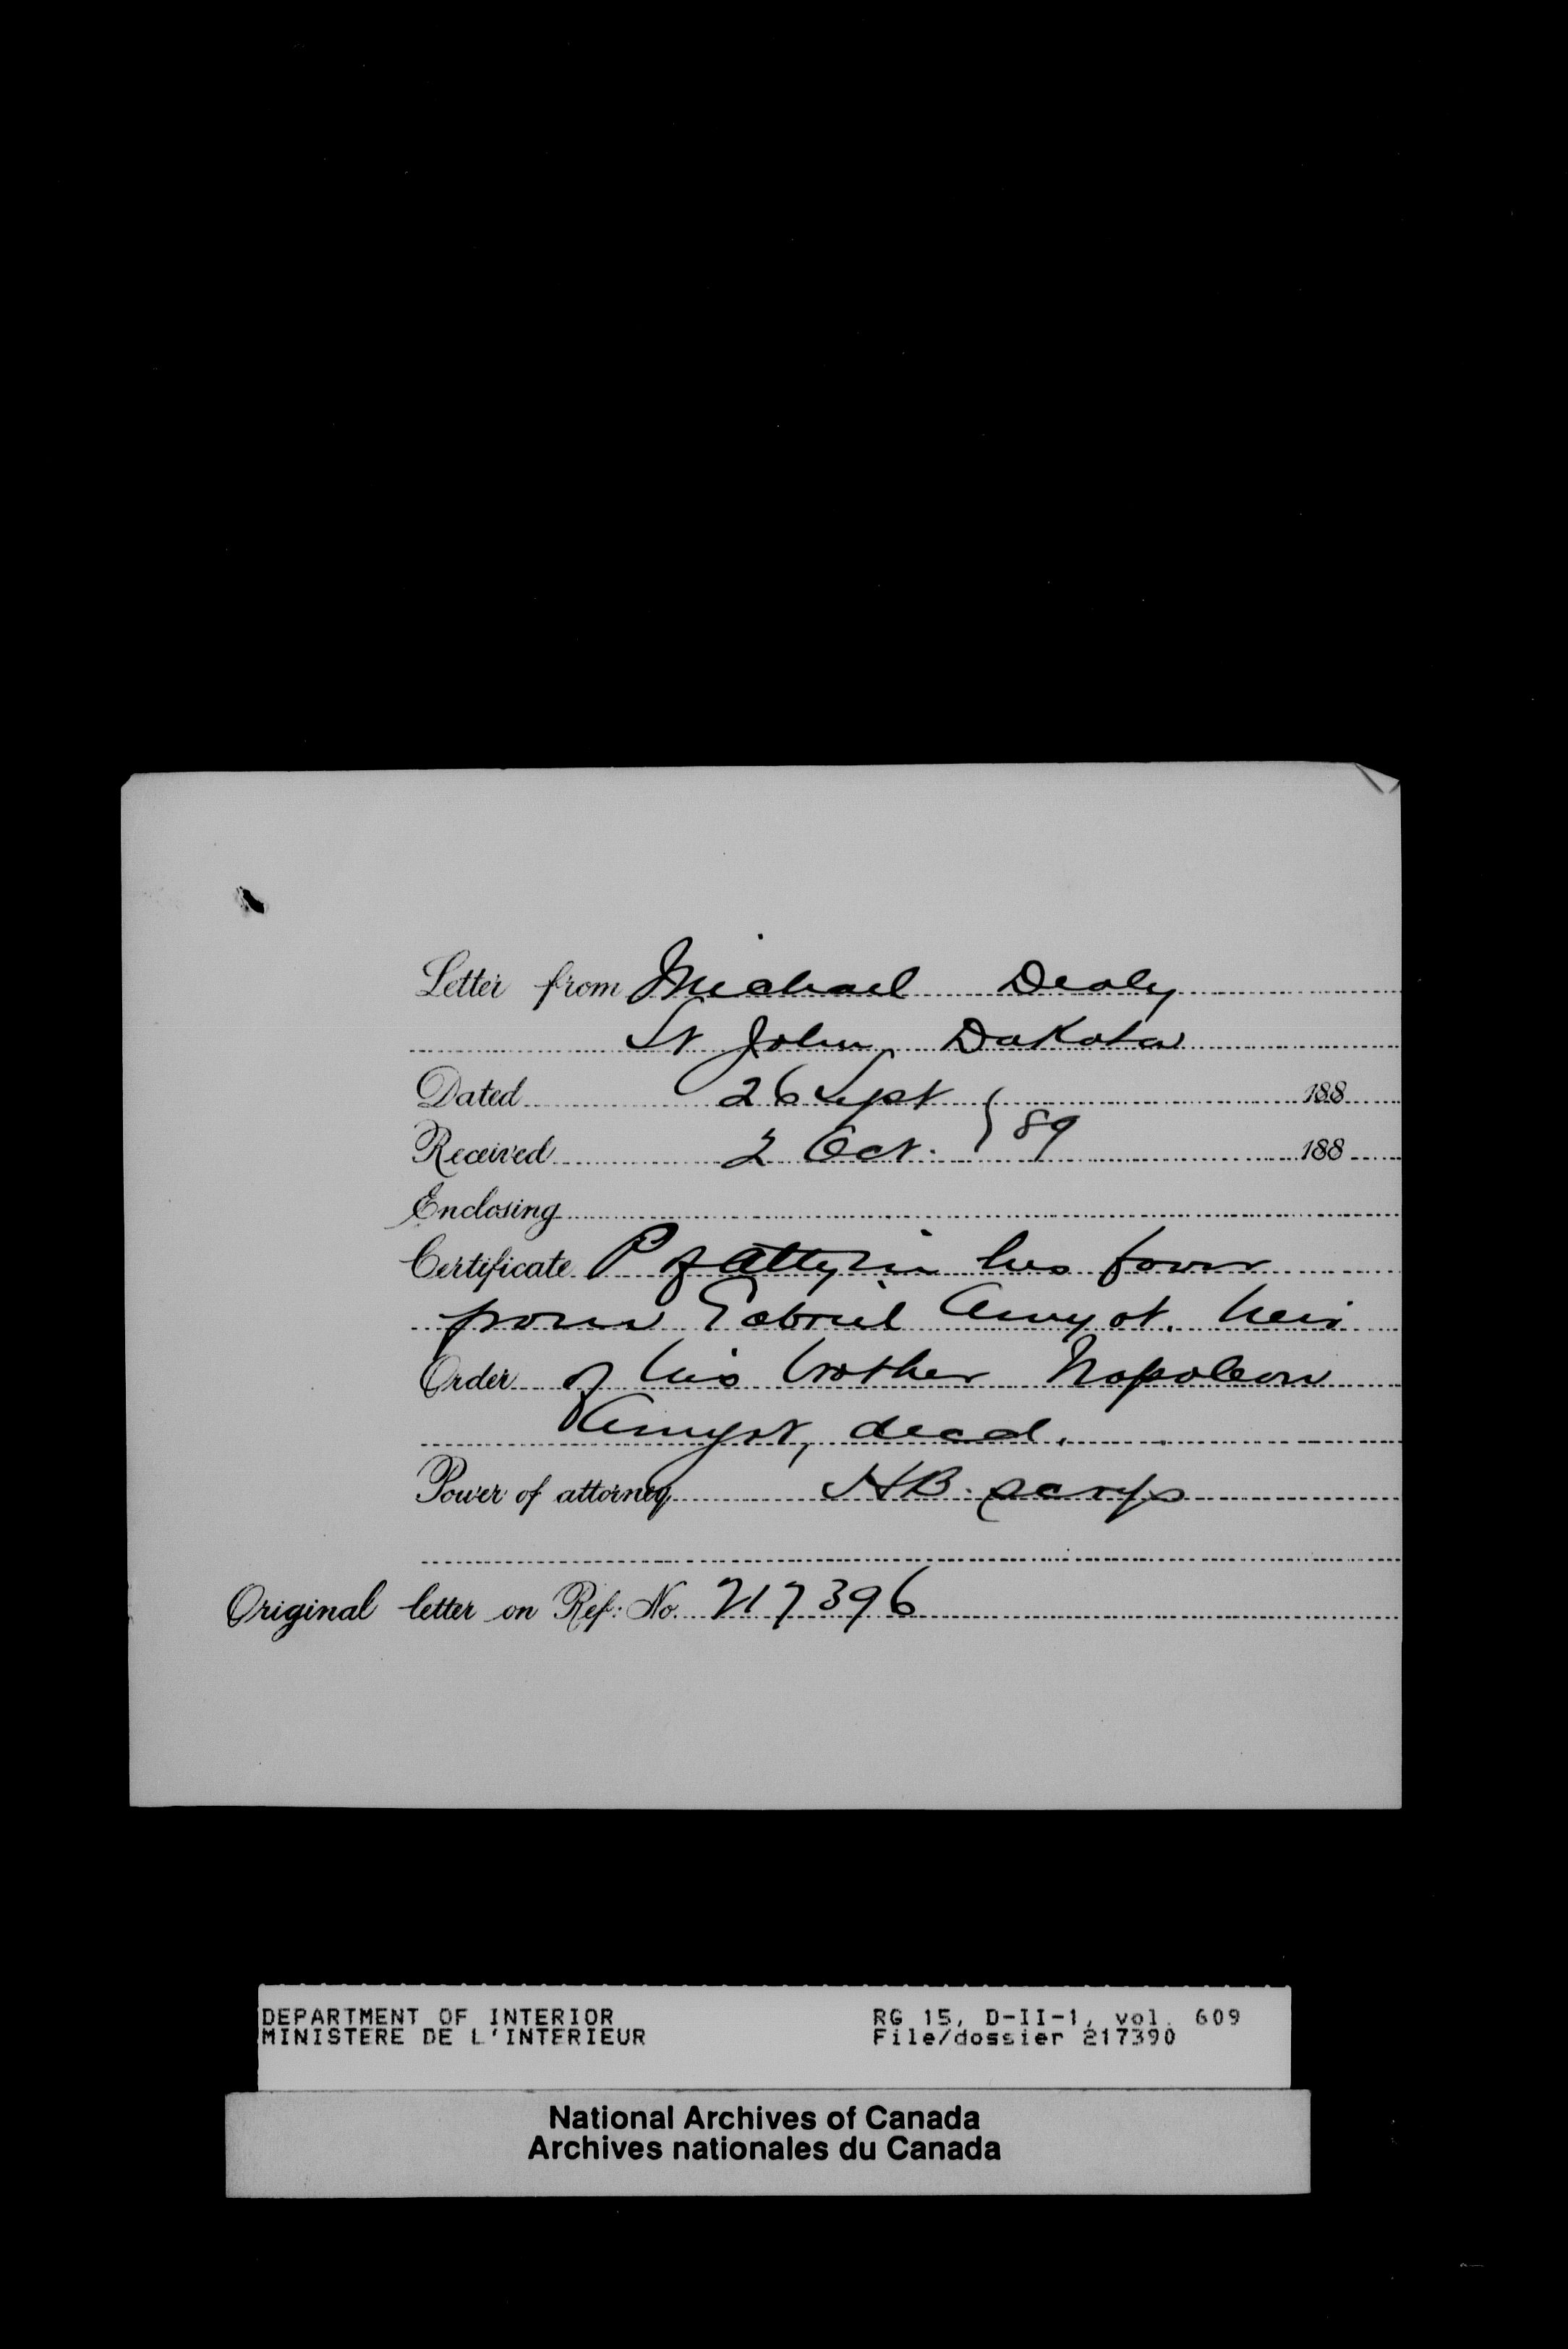 Letter from Michael Dealy
St John, Dakota
Dated 26 Sept } 188
Received 2 Oct. } 89 188
Enclosing
Certificate P of Atty in his favor
from Gabriel Amyot. heir
Order of his brother Napoleon
Amyot, dead.
Power of attorney HB. scrip
Original letter on Ref: No. 217396
DEPARTMENT OF INTERIOR RG 15, D-II-1, vol. 609
MINISTERE DE L'INTERIEUR File/dossier 217390
National Archives of Canada
Archives nationales du Canada